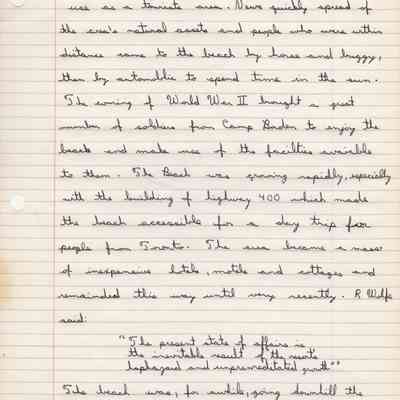 use as a tourists area. News quickly spread of
the area's natural assets and people who were within
distance came to the beach by horse and buggy,
then by automobile to spend time in the sun.
The coming of World War II brought a great
number of soldiers from Camp Borden to enjoy the
beach and make use of the facilities available
to them. The Beach was growing rapidly, especially
with the building of highway 400 which made
the beach accessible for a day trip for
people from Toronto. The area became a mass
of inexpensive hotels, motels and cottages and
remainded this way until very recently. R Wolfe
said:
"The present state of affairs is
the inevitable result of the resort's
haphazard and unpremeditated growth"
The beach was, for awhile, going downhill the